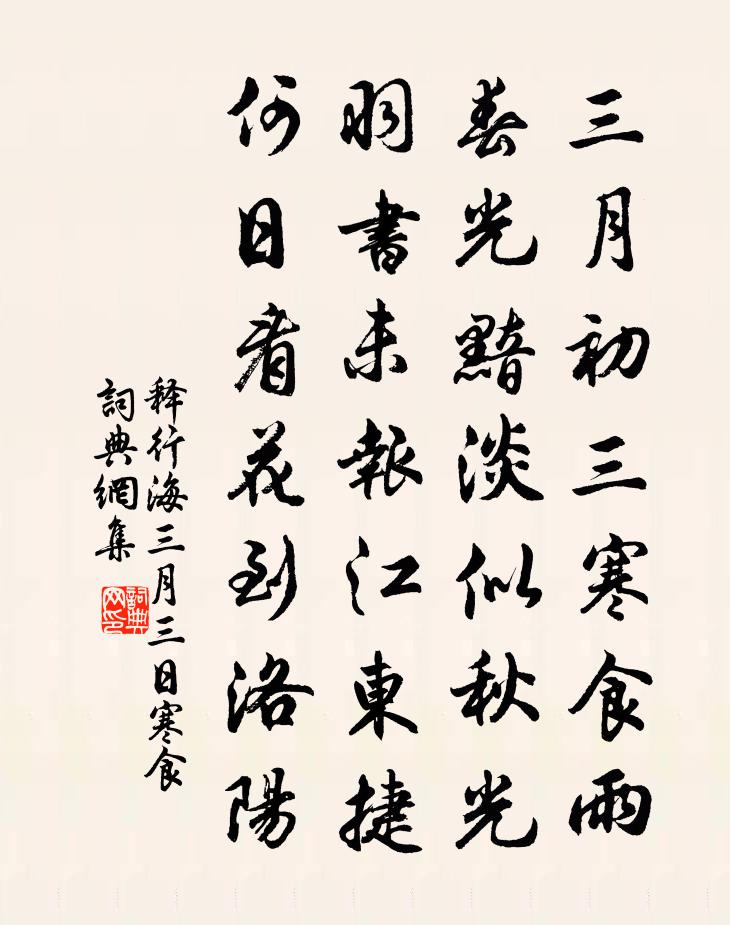 三月初三寒食雨
春光黯淡似秋光
羽書未報江東捷
何日看花到洛陽
释行海三月三日寒食
詞典網集
詞典网印